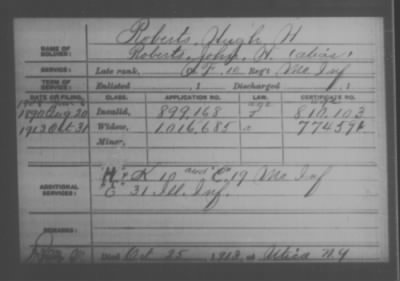 Roberts, Hugh H
NAME OF SOLDIER: Roberts, John, H. (alias)
SERVICE: Late rank, Reg't Mo Inf
TERM OF SERVICE: Enlisted , 1 Discharged , 1
DATE OF FILING. CLASS. APPLICATION NO. LAW. CERTIFICATE NO.
1890 Aug 20 Invalid, 899,168 810,103
1913 Oct 31 Widow, 1,016,685 774596
Minor,
ADDITIONAL SERVICES: K 10 and C. 19 Mo Inf
E 31 Ill. Inf.
REMARKS:
Died Oct 25, 1913, at Utica N.Y